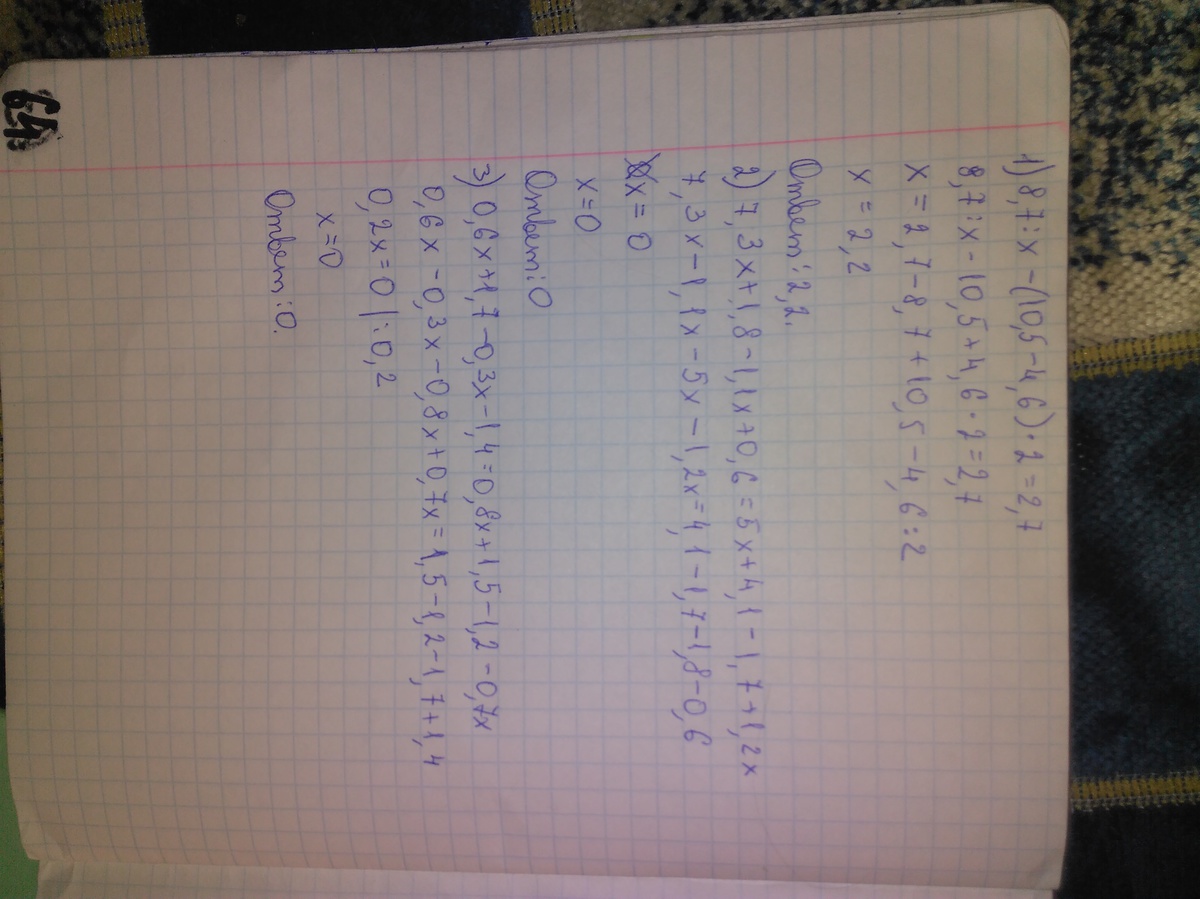 1) 8,7:x-(10,5-4,6)·2=2,7
8,7:x-10,5+4,6·2=2,7
x=2,7-8,7+10,5-4,6:2
x=2,2
Ответ:2,2.
2) 7,3x+1,8-1,1x+0,6=5x+4,1-1,7+1,2x
7,3x-1,1x-5x-1,2x=4,1-1,7-1,8-0,6
x=0
x=0
Ответ:0
3) 0,6x+1,7-0,3x-1,4=0,8x+1,5-1,2-0,7x
0,6x-0,3x-0,8x+0,7x=1,5-1,2-1,7+1,4
0,2x=0|:0,2
x=0
Ответ:0.